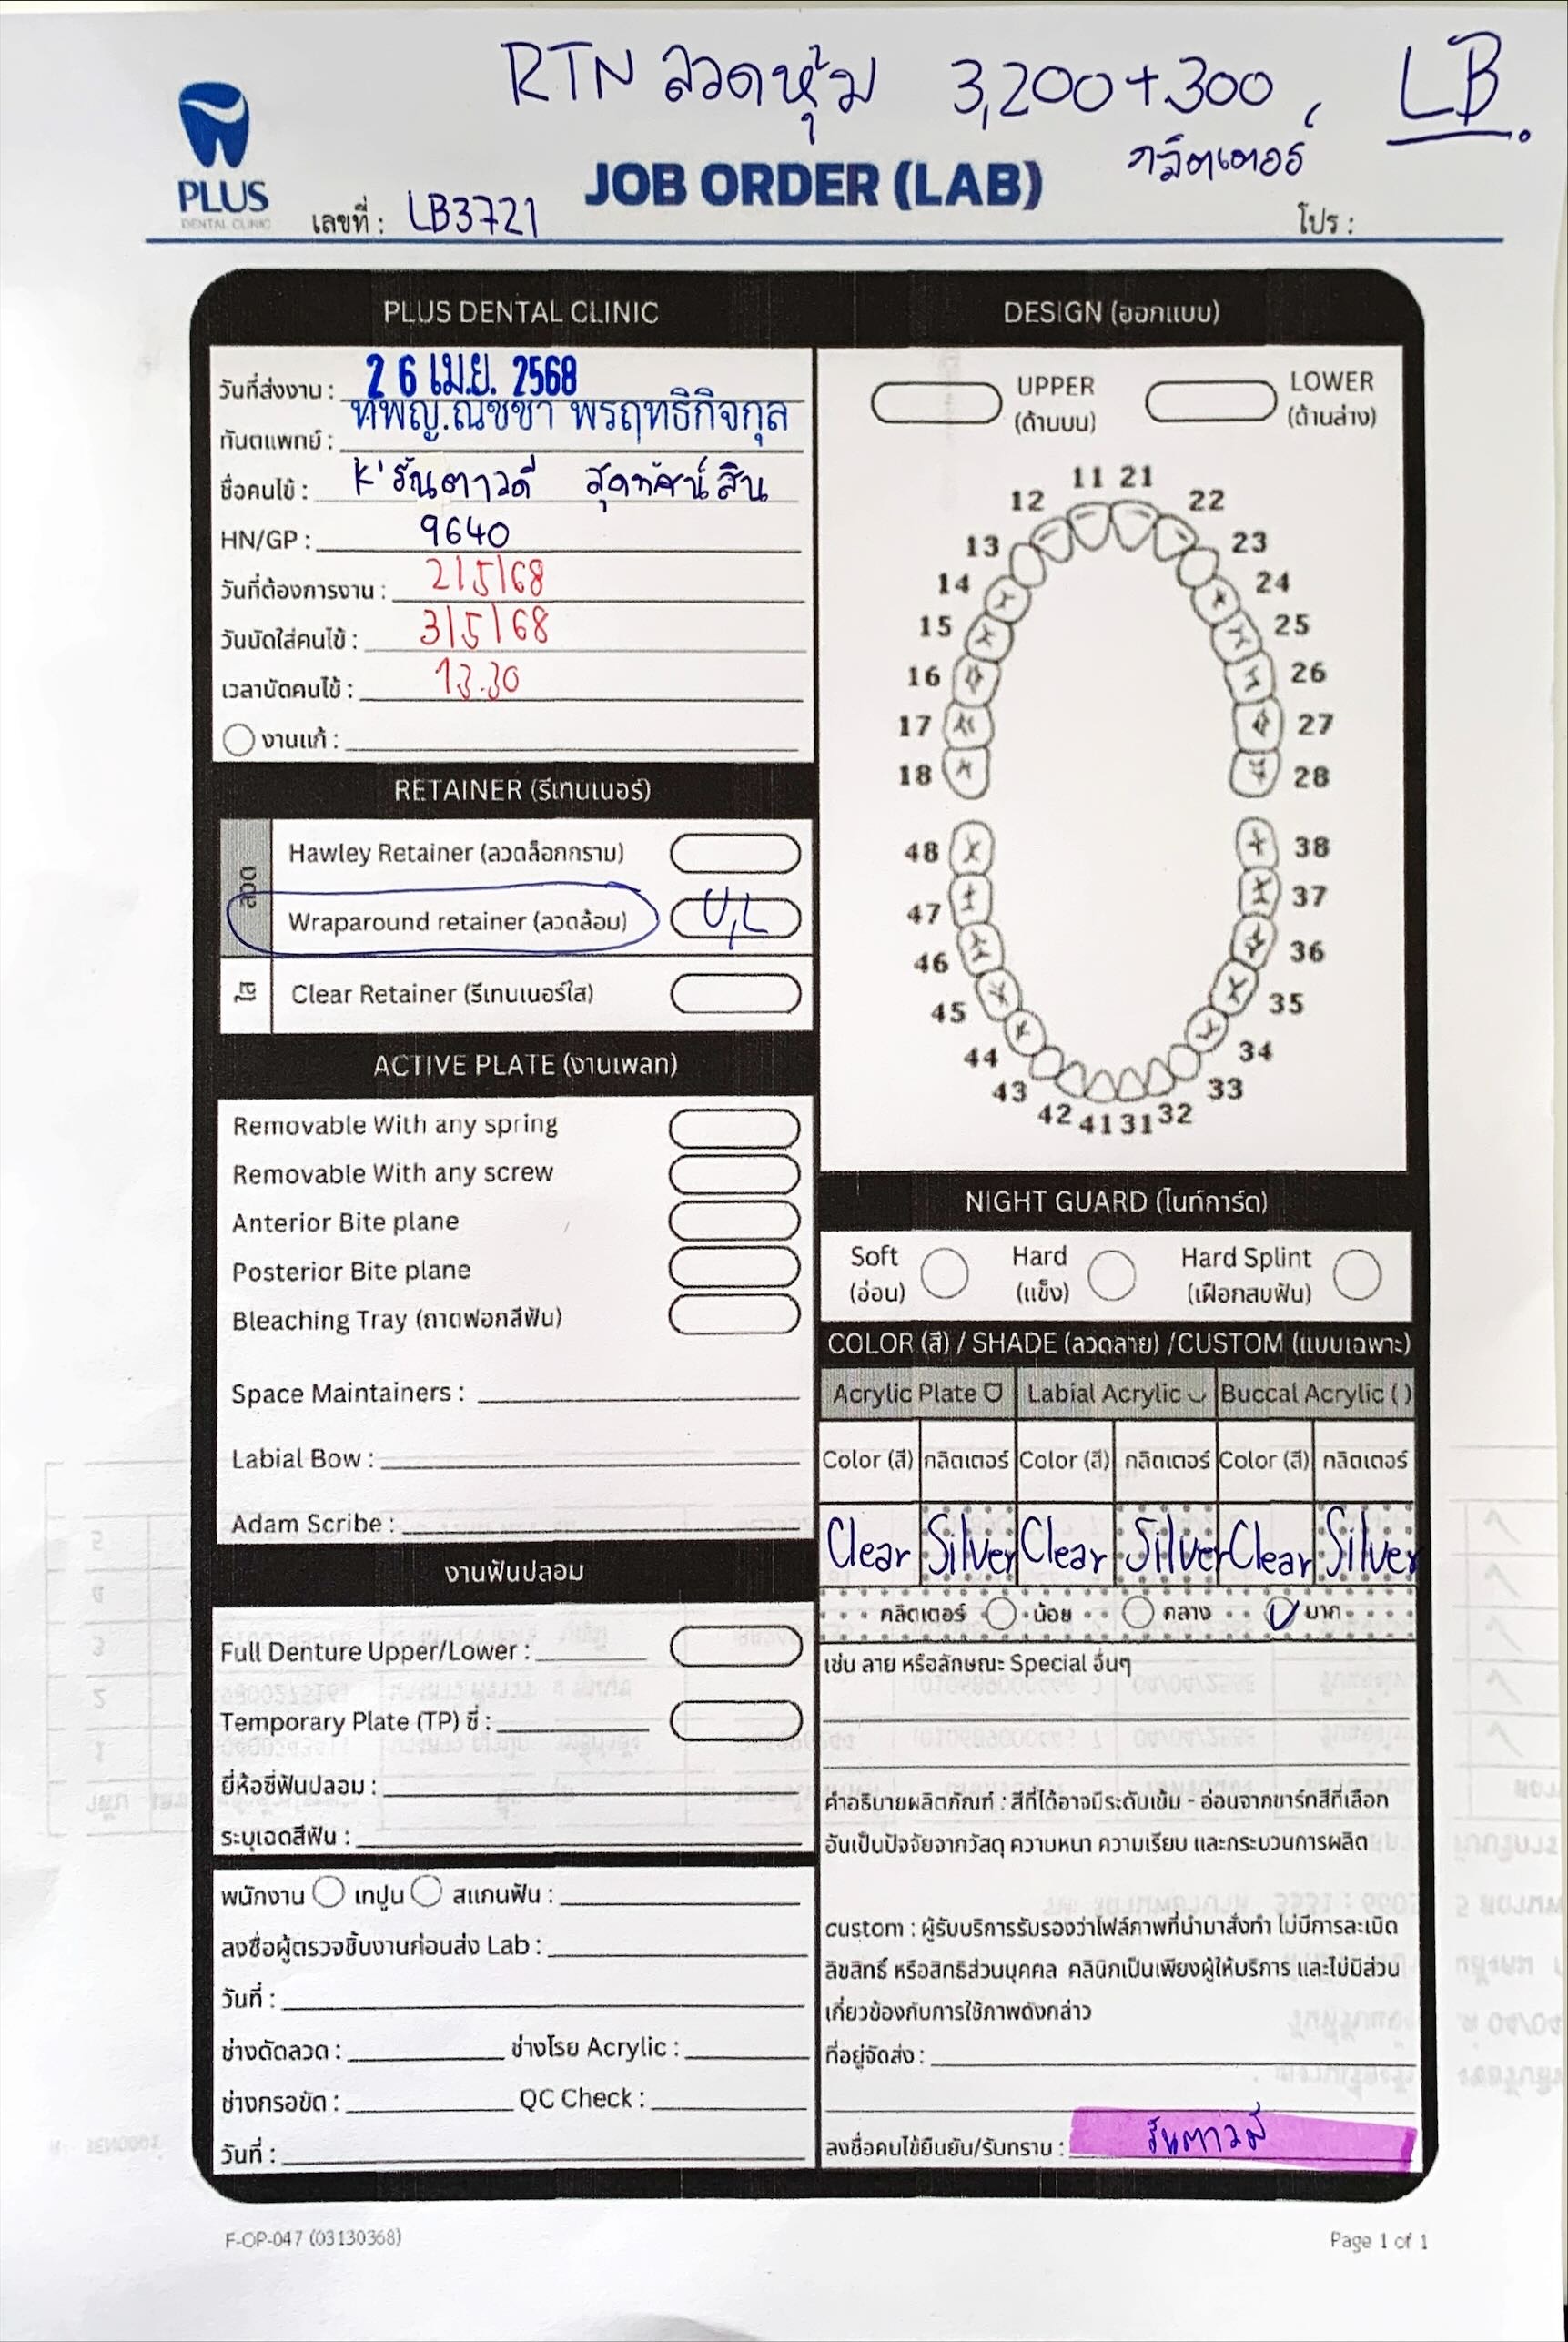 RTN ลวดหุ้ม 3,200+300, LB
กลิตเตอร์
PLUS
DENTAL CLINIC
JOB ORDER (LAB)
เลขที่ : LB3721
โปร :
PLUS DENTAL CLINIC
วันที่ส่งงาน : 26 เม.ย. 2568
ทันตแพทย์ : ทพญ.ณัชชา พรฤทธิกิจกุล
ชื่อคนไข้ : K' รันตาวดี สุดทัศน์สิน
HN/GP : 9640
วันที่ต้องการงาน : 2/5/68
วันนัดใส่คนไข้ : 3/5/68
เวลานัดคนไข้ : 13.30
งานแก้ :
RETAINER (รีเทนเนอร์)
ลวด
Hawley Retainer (ลวดล็อกกราม)
Wraparound retainer (ลวดล้อม) U,L
ใส
Clear Retainer (รีเทนเนอร์ใส)
ACTIVE PLATE (งานเพลท)
Removable With any spring
Removable With any screw
Anterior Bite plane
Posterior Bite plane
Bleaching Tray (ถาดฟอกสีฟัน)
Space Maintainers :
Labial Bow :
Adam Scribe :
งานฟันปลอม
Full Denture Upper/Lower :
Temporary Plate (TP) ซี่ :
ยี่ห้อซี่ฟันปลอม :
ระบุเฉดสีฟัน :
พนักงาน เทปูน สแกนฟัน :
ลงชื่อผู้ตรวจชิ้นงานก่อนส่ง Lab :
วันที่ :
ช่างดัดลวด : ช่างโรย Acrylic :
ช่างกรอขัด : QC Check :
วันที่ :
DESIGN (ออกแบบ)
UPPER
(ด้านบน)
LOWER
(ด้านล่าง)
11 21
12 22
13 23
14 24
15 25
16 26
17 27
18 28
48 38
47 37
46 36
45 35
44 34
43 33
42 41 31 32
NIGHT GUARD (ไนท์การ์ด)
Soft
(อ่อน)
Hard
(แข็ง)
Hard Splint
(เฝือกสบฟัน)
COLOR (สี) / SHADE (ลวดลาย) /CUSTOM (แบบเฉพาะ)
Acrylic Plate Labial Acrylic Buccal Acrylic ( )
Color (สี) กลิตเตอร์ Color (สี) กลิตเตอร์ Color (สี) กลิตเตอร์
Clear Silver Clear Silver Clear Silver
กลิตเตอร์ น้อย กลาง มาก
เช่น ลาย หรือลักษณะ Special อื่นๆ
คำอธิบายผลิตภัณฑ์ : สีที่ได้อาจมีระดับเข้ม - อ่อนจากชาร์กสีที่เลือก
อันเป็นปัจจัยจากวัสดุ ความหนา ความเรียบ และกระบวนการผลิต
custom : ผู้รับบริการรับรองว่าไฟล์ภาพที่นำมาสั่งทำ ไม่มีการละเมิด
ลิขสิทธิ์ หรือสิทธิส่วนบุคคล คลินิกเป็นเพียงผู้ให้บริการ และไม่มีส่วน
เกี่ยวข้องกับการใช้ภาพดังกล่าว
ที่อยู่จัดส่ง :
ลงชื่อคนไข้ยืนยัน/รับทราบ : รันตาวดี
F-OP-047 (03130368)
Page 1 of 1